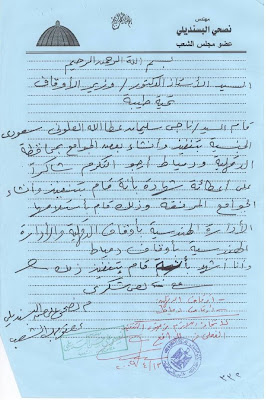 مهندس
نصحي البسنديلي
عضو مجلس الشعب
بسم الله الرحمن الرحيم
السيد الأستاذ الدكتور / وزير الأوقاف
تحية طيبة
قام السيد / ناجى سليمان عطا الله العلونى سعودى
الجنسية بتنفيذ وإنشاء بعض الجوامع بمحافظة
الدقهلية ودمياط أرجو التكرم شاكراً
على إعطائه شهادة بأنه قام بتنفيذ وإنشاء
الجوامع المرفقة وذلك قام باستلامها
الإدارة الهندسية بأوقاف الدقهلية والإدارة
الهندسية بأوقاف دمياط
وأنا أشهد بأنه قام بتنفيذ ذلك
مع خالص شكرى
م نصحى البسنديلى
عضو مجلس الشعب
٣٣٥